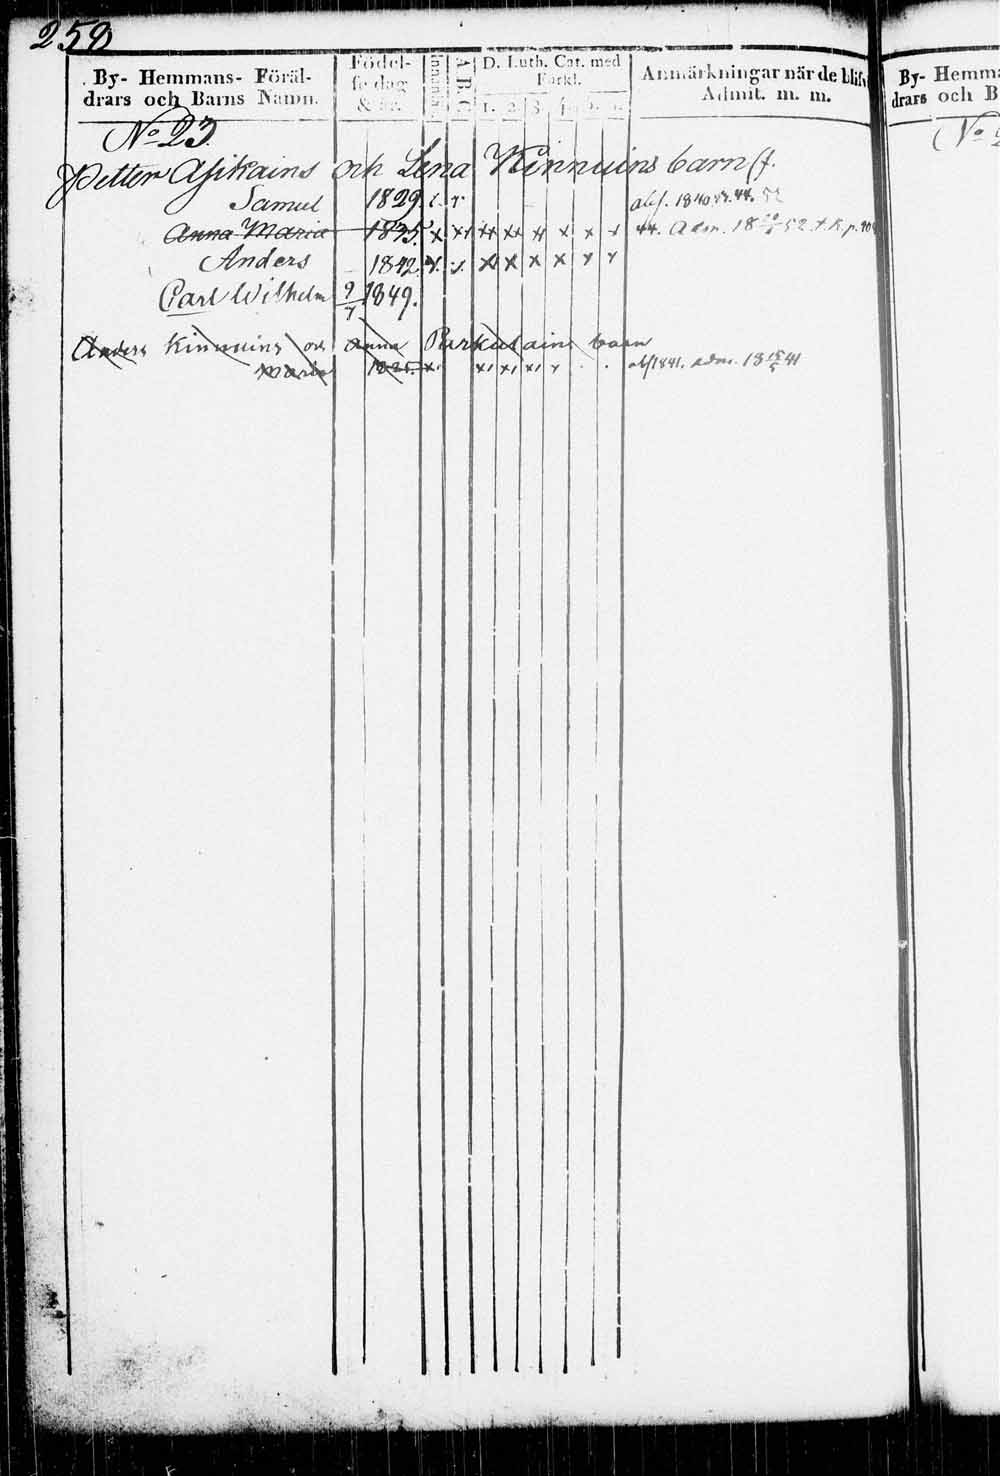 258
By- Hemmans- Föräl-
drars och Barns Namn.
Födel-
se dag
& år.
Innanl.
A B C
D. Luth. Cat. med
Förkl.
1. 2. 3. 4. 5.
Anmärkningar när de blifv
Admit. m. m.
No 23.
Petter Asikains och Lena Kinnuins barn f.
Samuel 1829
abs. 1840. 43. 44. 52
Anna Maria 1835. x xx xx xx xx x x x 44. Adm. 18 52
Anders 1842. x x x x x
Carl Wilhelm 9/7 1849.
Anders Kinnuins och Anna Purkulains barn
Maria 1825. x x x x x abs 1841. adm. 18 41
By- Hemma
drars och B
No